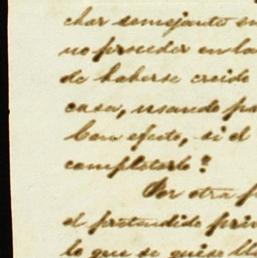 char semejante en
no proceder en la
de haberse creido
casa, usando pa
Con efecto, si el
completarlo?
Por otra p
el pretendido prin
lo que se quiso ll